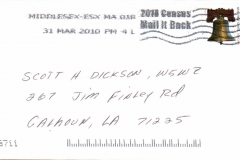 MIDDLESEX-ESX MA 018
31 MAR 2010 PM 4 L
2010 Census
Mail It Back
SCOTT H DICKSON, W5WZ
267 Jim Finley Rd
CALHOUN, LA 71225
8711